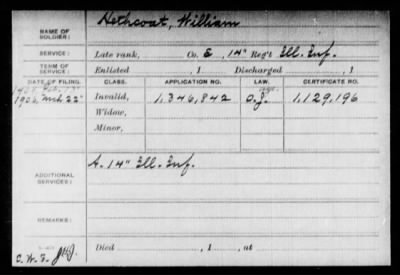 NAME OF SOLDIER: Hethcoat, William
SERVICE: Late rank, Co. E, 14" Reg't Ill. Inf.
TERM OF SERVICE: Enlisted , 1 Discharged , 1
DATE OF FILING. CLASS. APPLICATION NO. LAW. CERTIFICATE NO.
1906, Mch 22" Invalid, 1,346,842 O.J. 1,129,196
Widow,
Minor,
ADDITIONAL SERVICES: A. 14" Ill. Inf.
REMARKS:
Died , 1 , at
C.W.F.